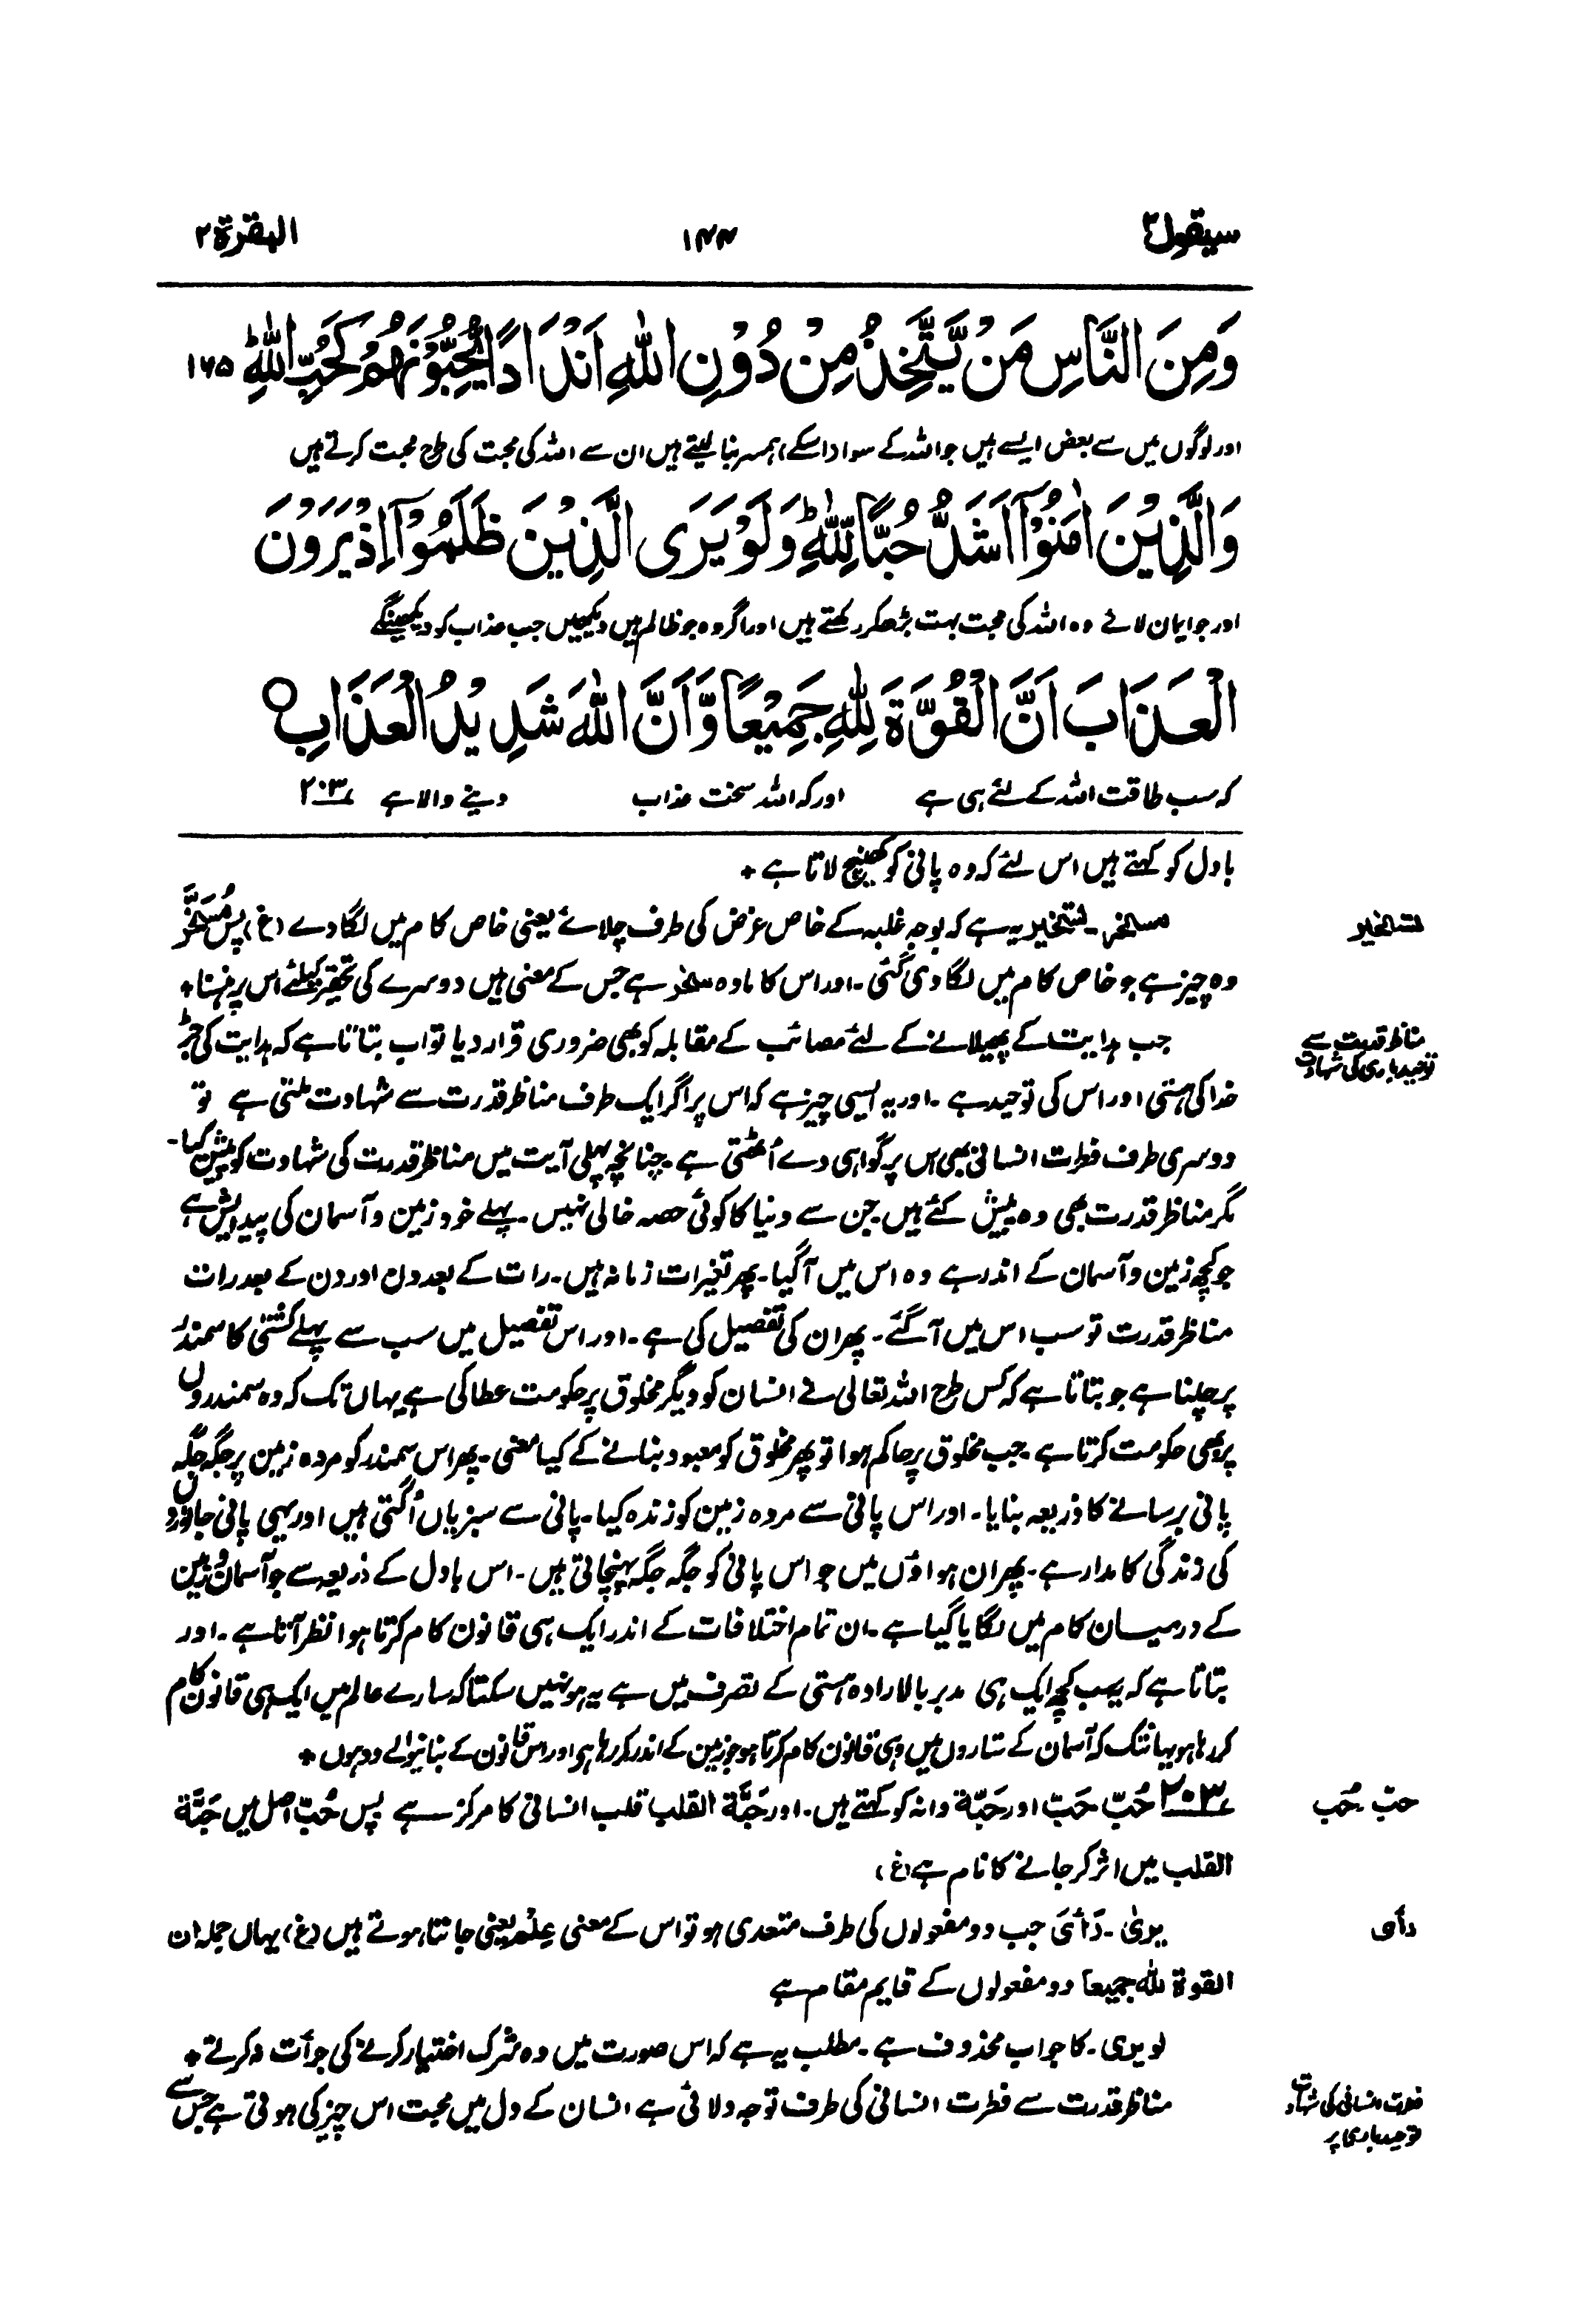 سیقول ۲
۱۴۴
البقرۃ ۲
وَمِنَ النَّاسِ مَنْ یَّتَّخِذُ مِنْ دُوْنِ اللّٰهِ اَنْدَادًا یُّحِبُّوْنَهُمْ كَحُبِّ اللّٰهِ ؕ ۱۶۵
اور لوگوں میں سے بعض ایسے ہیں جو اللہ کے سوا (اسکے) ہمسر بنا لیتے ہیں ان سے اللہ کی محبت کی طرح محبت کرتے ہیں
وَالَّذِیْنَ اٰمَنُوْۤا اَشَدُّ حُبًّا لِّلّٰهِ ؕ وَلَوْ یَرَی الَّذِیْنَ ظَلَمُوْۤا اِذْ یَرَوْنَ
اور جو ایمان لائے وہ اللہ کی محبت بہت بڑھکر رکھتے ہیں اور اگر وہ جو ظالم ہیں دیکھیں جب عذاب کو دیکھینگے
الْعَذَابَ اَنَّ الْقُوَّةَ لِلّٰهِ جَمِیْعًا وَّاَنَّ اللّٰهَ شَدِیْدُ الْعَذَابِ ○
کہ سب طاقت اللہ کے لئے ہی ہے اور کہ اللہ سخت عذاب دینے والا ہے ۲۰۳
بادل کو کہتے ہیں اس لئے کہ وہ پانی کو کھینچ لاتا ہے +
تسخیر
مسخر۔ تسخیر یہ ہے کہ بوجہ غلبہ کے خاص غرض کی طرف چلائے یعنی خاص کام میں لگا دے (غ) پس مُسَخَّر
وہ چیز ہے جو خاص کام میں لگا دی گئی۔ اور اس کا مادہ سخر ہے جس کے معنی ہیں دوسرے کی تحقیر کیلئے اس پر ہنسنا +
مناظر قدرت سے
توحید باری کی شہادت
جب ہدایت کے پھیلانے کے لئے مصائب کے مقابلہ کو بھی ضروری قرار دیا تو اب بتاتا ہے کہ ہدایت کی جڑ
خدا کی ہستی اور اس کی توحید ہے۔ اور یہ ایسی چیز ہے کہ اس پر اگر ایک طرف مناظر قدرت سے شہادت ملتی ہے تو
دوسری طرف فطرت انسانی بھی اس پر گواہی دے اُٹھتی ہے۔ چنانچہ پہلی آیت میں مناظر قدرت کی شہادت کو پیش کیا۔
مگر مناظر قدرت بھی وہ پیش کئے ہیں جن سے دنیا کا کوئی حصہ خالی نہیں۔ پہلے خود زمین و آسمان کی پیدائش ہے
جو کچھ زمین و آسمان کے اندر ہے وہ اس میں آگیا۔ پھر تغیرات زمانہ ہیں۔ رات کے بعد دن اور دن کے بعد رات
مناظر قدرت تو سب اس میں آگئے۔ پھر ان کی تفصیل کی ہے۔ اور اس تفصیل میں سب سے پہلے کشتی کا سمندر
پر چلنا ہے جو بتاتا ہے کہ کس طرح اللہ تعالیٰ نے انسان کو دیگر مخلوق پر حکومت عطا کی ہے یہاں تک کہ وہ سمندروں
پر بھی حکومت کرتا ہے۔ جب مخلوق پر حاکم ہوا تو پھر مخلوق کو معبود بنانے کے کیا معنی۔ پھر اس سمندر کو مردہ زمین پر جگہ جگہ
پانی برسانے کا ذریعہ بنایا۔ اور اس پانی سے مردہ زمین کو زندہ کیا۔ پانی سے سبزیاں اُگتی ہیں اور یہی پانی جانوروں
کی زندگی کا مدار ہے۔ پھر ان ہواؤں میں جو اس پانی کو جگہ جگہ پہنچاتی ہیں۔ اس بادل کے ذریعہ سے جو آسمان و زمین
کے درمیان کام میں لگایا گیا ہے۔ ان تمام اختلافات کے اندر ایک ہی قانون کام کرتا ہوا نظر آتا ہے۔ اور
بتاتا ہے کہ یہ سب کچھ ایک ہی مدبر بالارادہ ہستی کے تصرف میں ہے یہ ہو نہیں سکتا کہ سارے عالم میں ایک ہی قانون کام
کر رہا ہو یہانتک کہ آسمان کے ستاروں میں وہی قانون کام کرتا ہو جو زمین کے اندر کر رہا ہو اور اس قانون کے بنانیوالے دو ہوں +
حبّ حُبّ
۲۰۳ حُبّ حَبّ اور حَبّة دانہ کو کہتے ہیں۔ اور حَبَّة القلب قلب انسانی کا مرکز ہے پس حُبّ اصل میں حَبَّة
القلب میں اثر کر جانے کا نام ہے (غ)
رأی
یریٰ۔ رَأیَ جب دو مفعولوں کی طرف متعدی ہو تو اس کے معنی عِلْم یعنی جاننا ہوتے ہیں (غ) یہاں جملہ ان
القوة للّٰہ جمیعا دو مفعولوں کے قایم مقام ہے
لو یری۔ کا جواب محذوف ہے۔ مطلب یہ ہے کہ اس صورت میں وہ شرک اختیار کرنے کی جرأت نہ کرتے +
فطرت انسانی کی شہادت
توحید باری پر
مناظر قدرت سے فطرت انسانی کی طرف توجہ دلائی ہے انسان کے دل میں محبت اس چیز کی ہوتی ہے جس سے